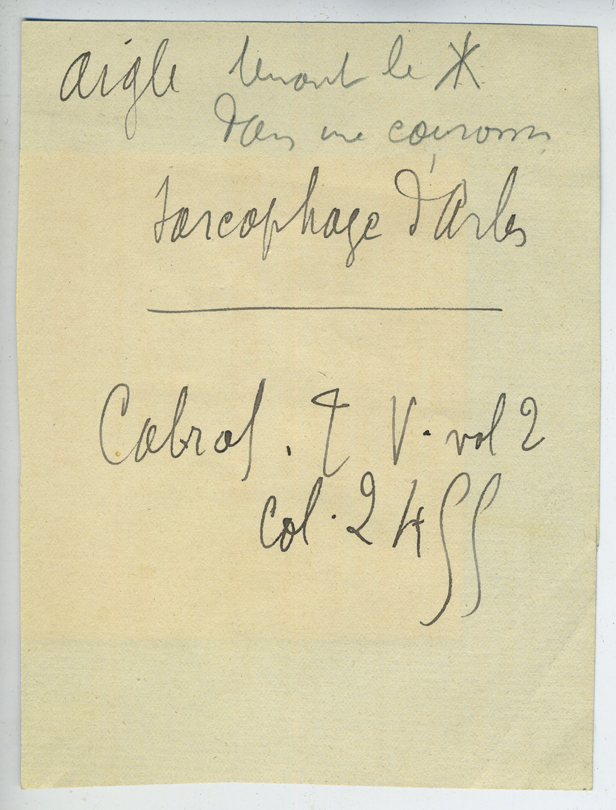 Aigle tenant le ☧
dans une couronne
sarcophage d'Arles
Cabrol. T V. vol 2
col. 2455